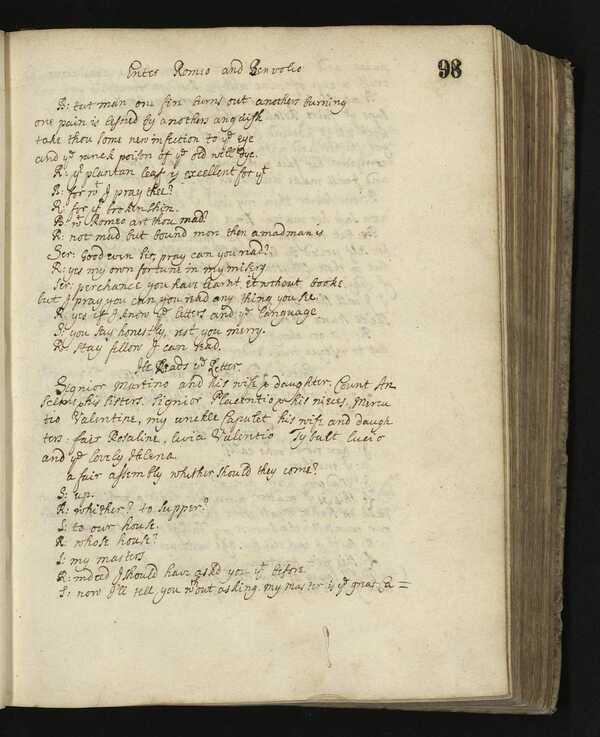 Enter Romeo and Benvolio
98
B: tut man one fire burns out anothers burning
one pain is lessned by anothers anguish
take thou some new infection to yᵉ eye
and yᵉ ranck poison of yᵉ old will dye.
R: yʳ plantan leaf is excellent for yᵗ
B: for wᵗ I pray thee?
R: for yʳ broken shin.
B: wʸ Romeo art thou mad?
R: not mad but bound more then a madman is
Ser: Good even sir, pray can you read?
R: yes my own fortune in my misery
Ser: perchance you have learnt it without booke.
but I pray you can you read any thing you see
R: yes if I know yᵉ letters and yᵉ language
S: you say honestly, rest you merry.
R: Stay fellow I can read.
He Reads yᵉ Letter.
Signior Martino and his wife & daughter, Count An
selm & his sisters, Signior Placentio & his nieces, Mercu
tio Valentine, my unckle Capulet his wife and daugh
ters: fair Rosaline, Livia Valentio Tybalt Lucio
and yᵉ lovely Helena
a fair assembly whither should they come?
S: up.
R: whither? to supper?
S: to our house.
R: whose house?
S: my masters
R: indeed I should have askd you yᵗ before.
S: now I'll tell you wᵗʰout asking. my master is yᵉ great Ca=